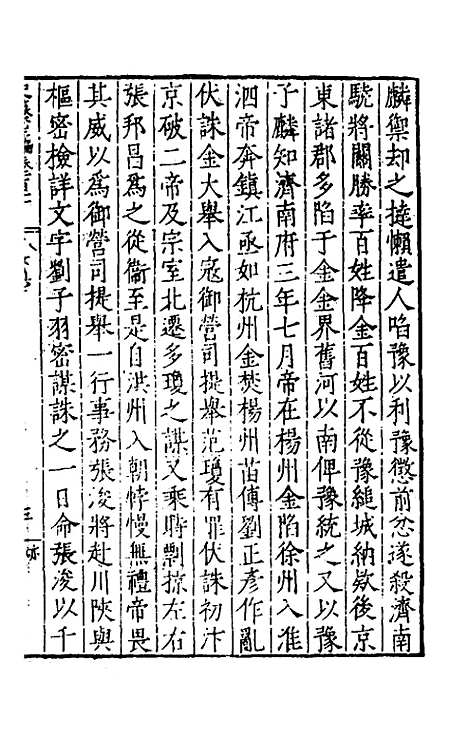 麟禦却之撻懶遣人啗豫以利豫懲前忿遂殺濟南
驍將關勝率百姓降金百姓不從豫縋城納欵後京
東諸郡多陷于金金界舊河以南俾豫統之又以豫
子麟知濟南府三年七月帝在楊州金陷徐州入淮
泗帝奔鎮江亟如杭州金焚楊州苗傅劉正彥作亂
伏誅金大舉入寇御營司提舉范瓊有罪伏誅初汴
京破二帝及宗室北遷多瓊之謀又乘時剽掠左右
張邦昌爲之從衞至是自洪州入朝悖慢無禮帝畏
其威以爲御營司提舉一行事務張浚將赴川陝與
樞密檢詳文字劉子羽密謀誅之一日命張浚以千